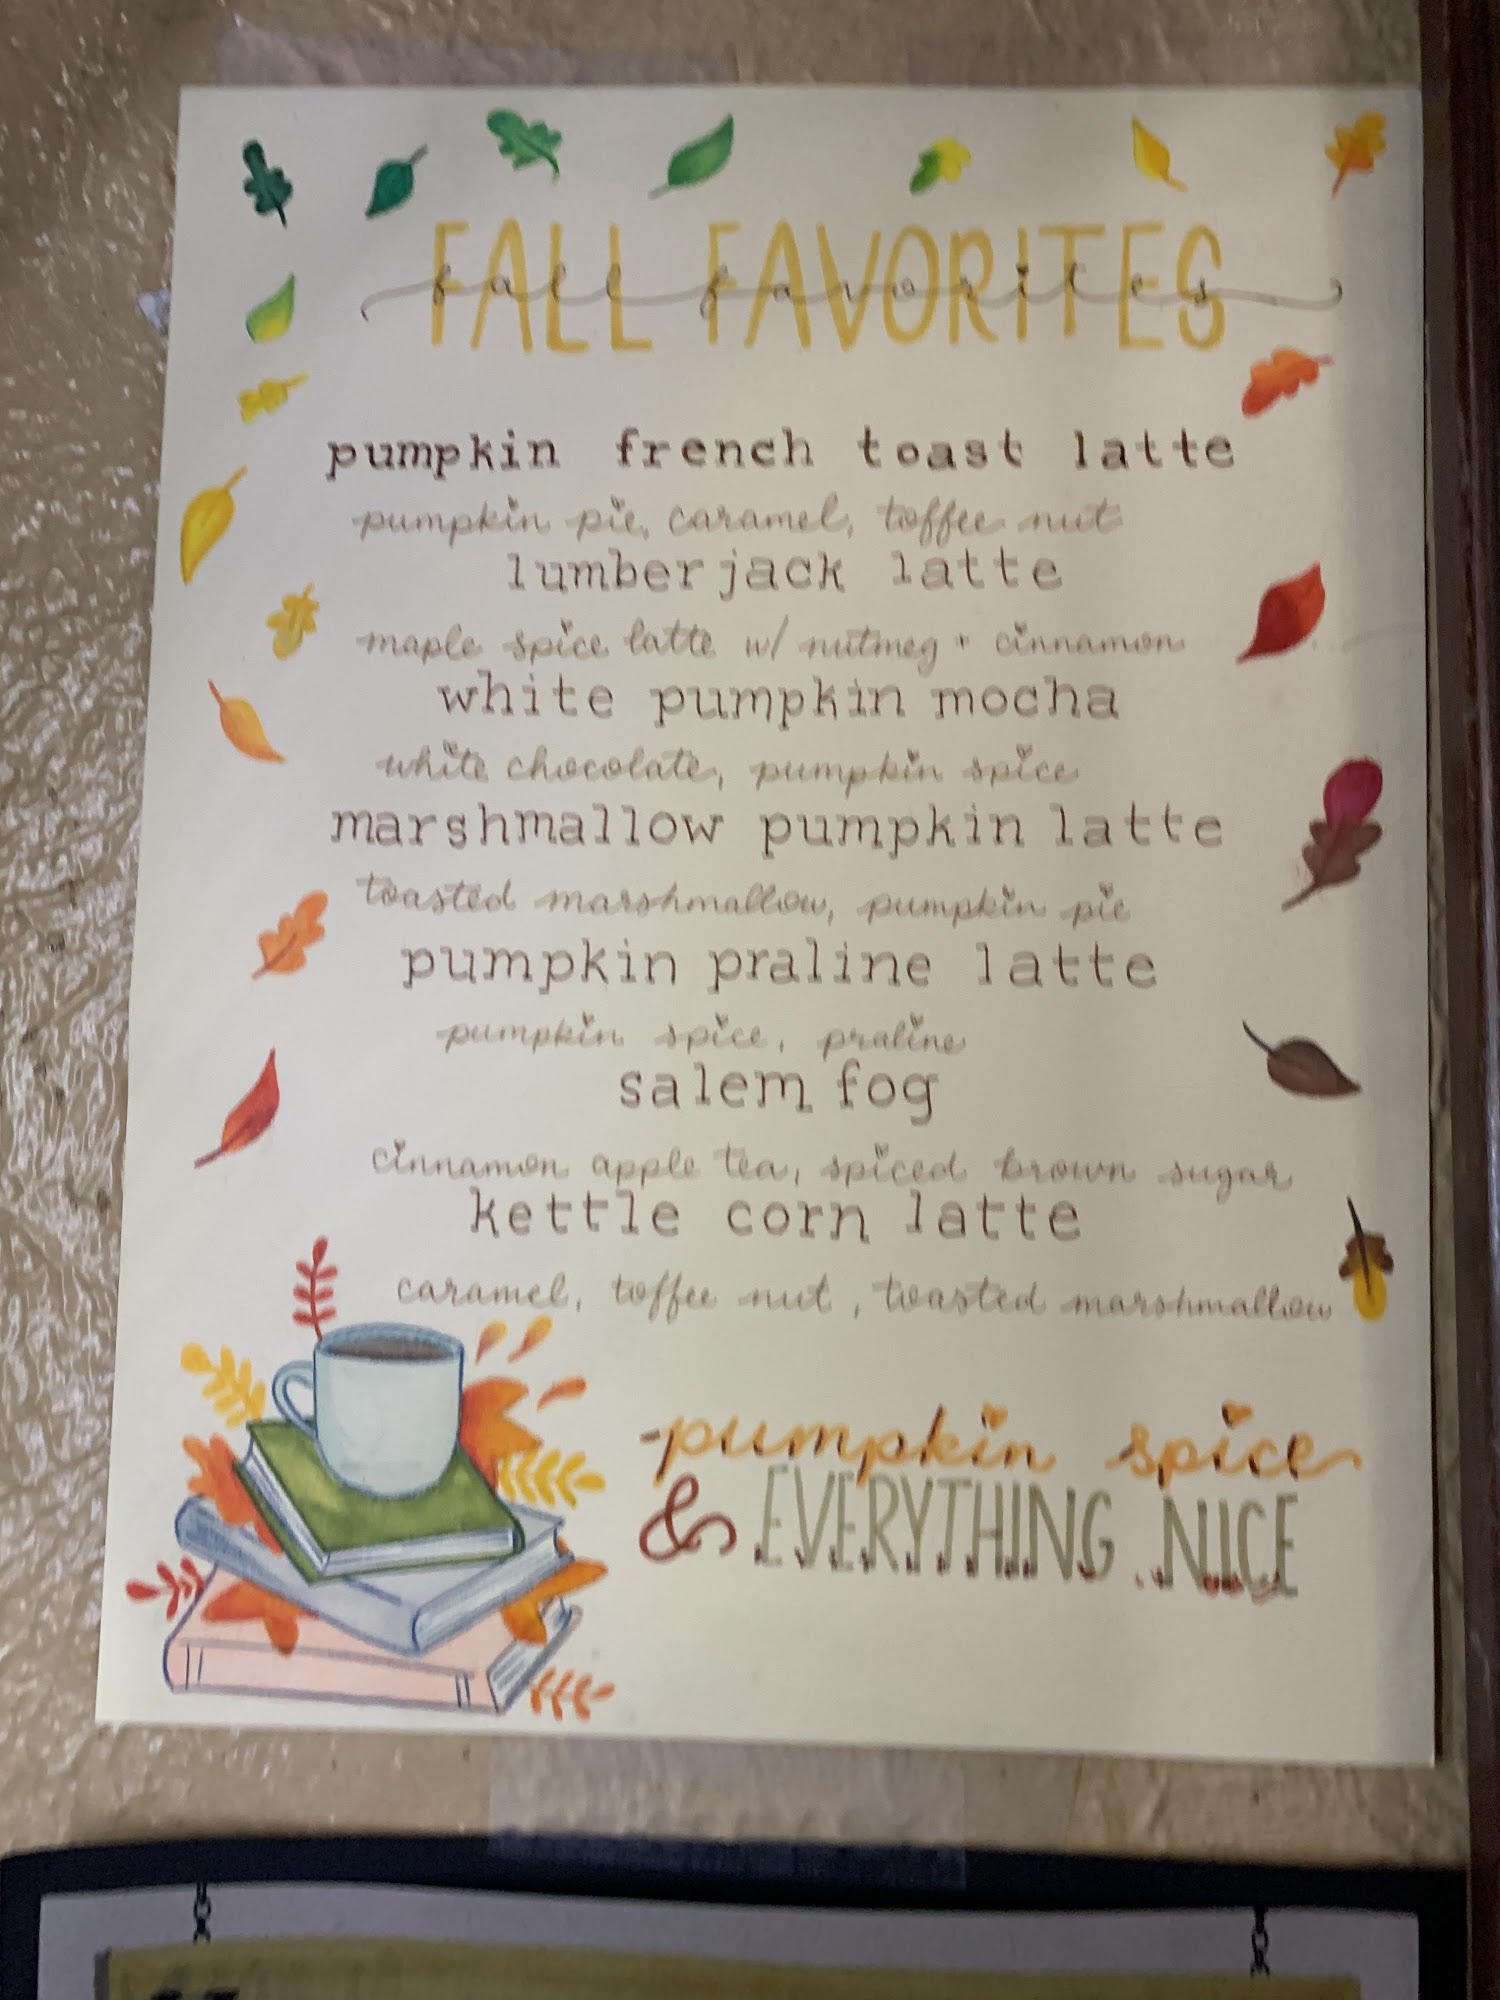 FALL FAVORITES
fall favorites
pumpkin french toast latte
pumpkin pie, caramel, toffee nut
lumberjack latte
maple spice latte w/ nutmeg + cinnamon
white pumpkin mocha
white chocolate, pumpkin spice
marshmallow pumpkin latte
toasted marshmallow, pumpkin pie
pumpkin praline latte
pumpkin spice, praline
salem fog
cinnamon apple tea, spiced brown sugar
kettle corn latte
caramel, toffee nut, toasted marshmallow
pumpkin spice
& EVERYTHING NICE